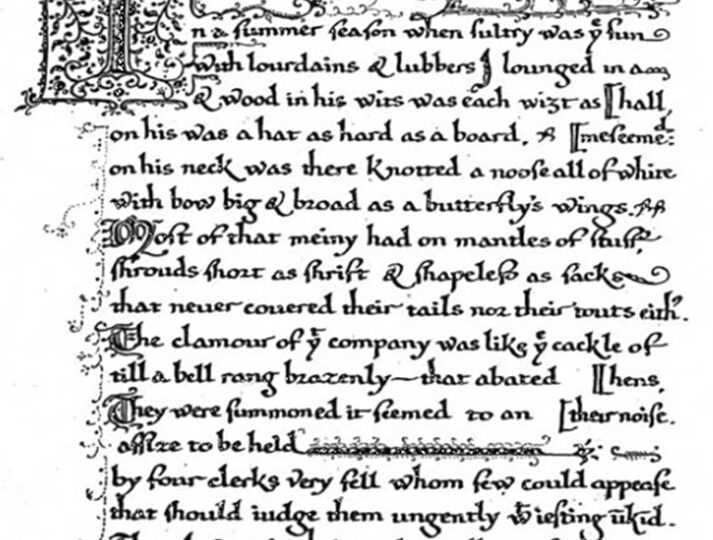 In a summer season when sultry was yͤ sun
with lourdains & lubbers I lounged in a
& wood in his wits was each wiȝt as [hall,
on his was a hat as hard as a board, [meseemed:
on his neck was there knotted a noose all of white
with bow big & broad as a butterfly's wings.
Most of that meiny had on mantles of stuff
shrouds short as shrift & shapeless as sacks
that never covered their tails nor their touts eith'.
The clamour of yͤ company was like yͤ cackle of
till a bell rang brazenly—that abated [hens,
They were summoned it seemed to an [their noise.
assize to be held
by four clerks very fell whom few could appease
that should iudge them ungently w̄ iesting ūkid.